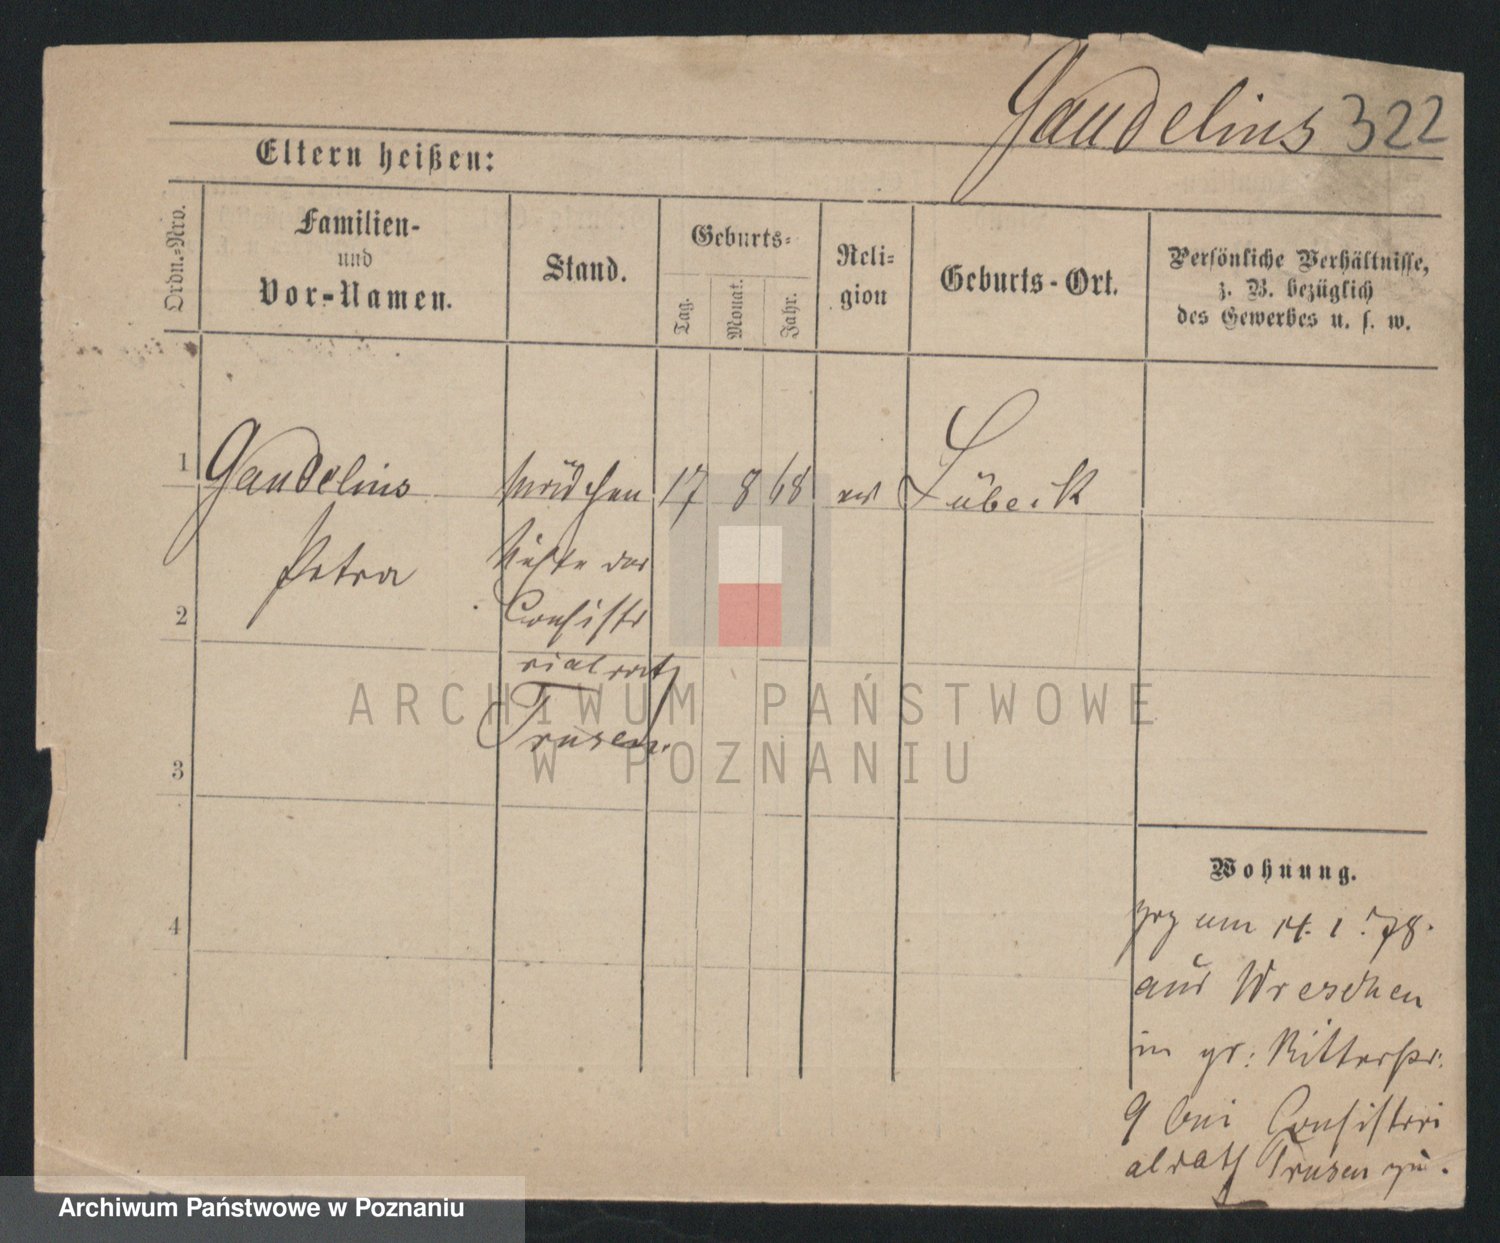 Gaudelius 322
Eltern heißen:
Ordn.-Nro.
Familien-
und
Vor-Namen.
Stand.
Geburts-
Tag.
Monat.
Jahr.
Reli-
gion
Geburts-Ort.
Persönliche Verhältnisse,
z. B. bezüglich
des Gewerbes u. s. w.
1 Gaudelius Mädchen 17 8 68 ev Lübeck
Petra Nichte des
2 Consisto
rialrath
Trusen.
3
4
Wohnung.
zog am 14. 1. 78.
aus Wreschen
in gr: Ritterstr:
9 bei Consistori
alrath Trusen zu.
ARCHIWUM PAŃSTWOWE
W POZNANIU
Archiwum Państwowe w Poznaniu